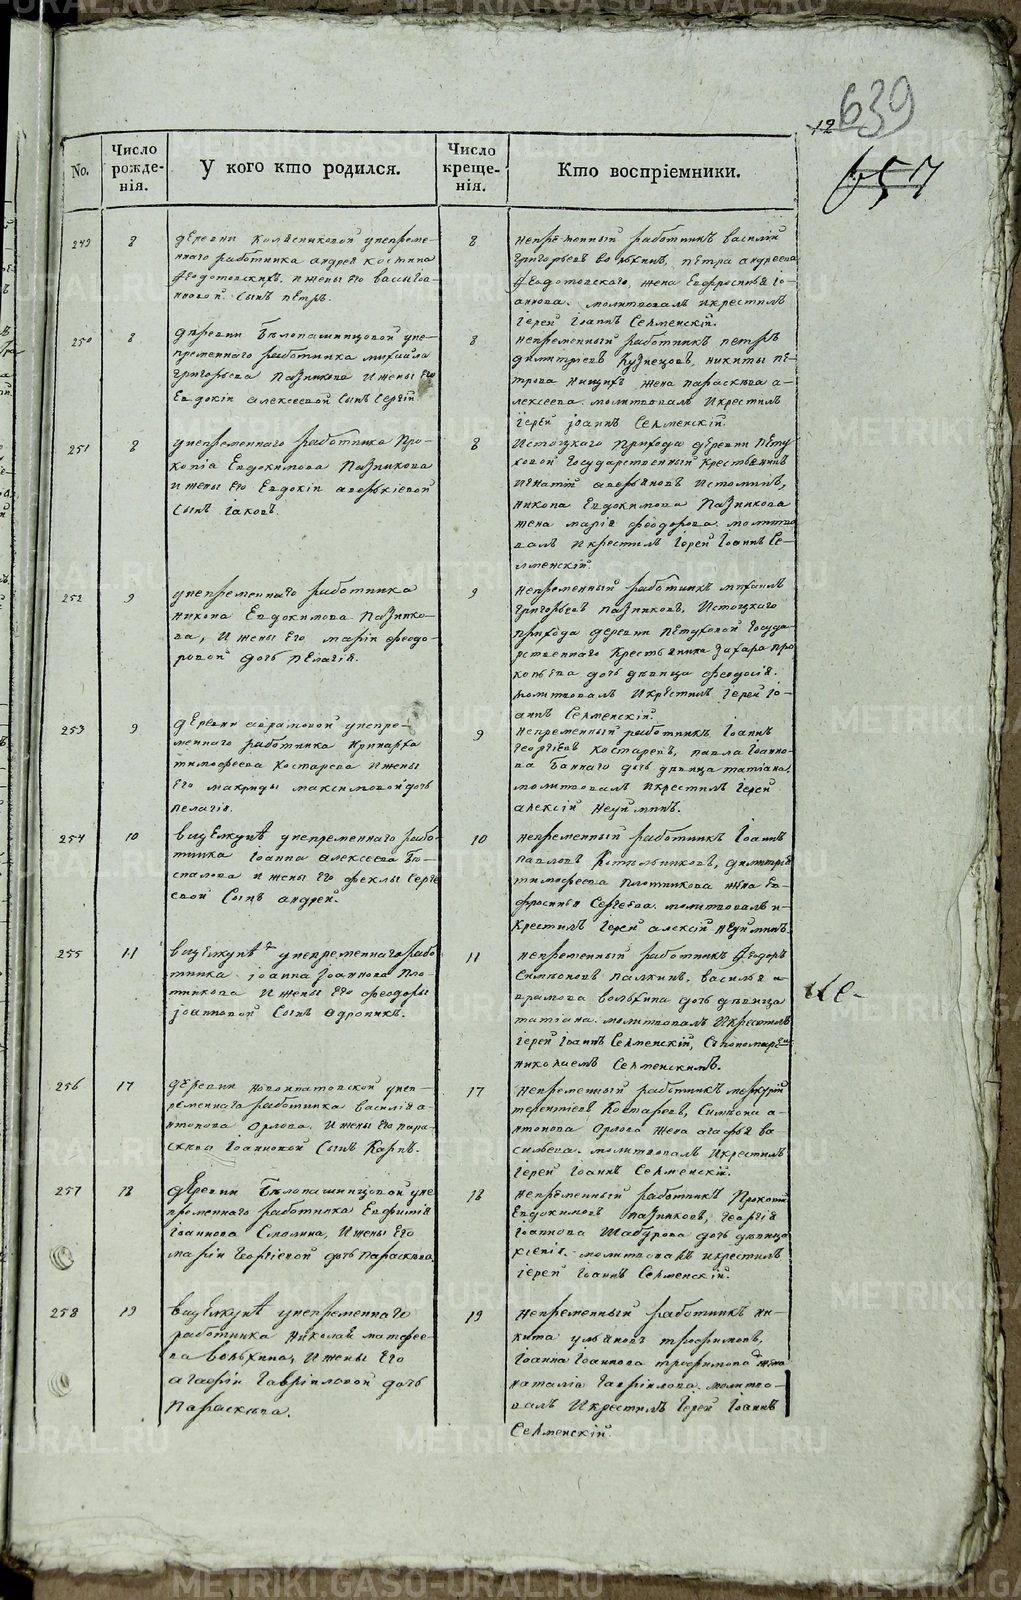 639
12
657
No.
Число рожде-нія.
У кого кто родился.
Число креще-нія.
Кто воспріемники.
249
8
деревни Колѣсниковой унепреме-
ннаго работника андрея костина
Ѳедотовскихъ, и жены его васы іоа-
нновой. Сынъ пётръ.
8
непременный работникъ василій
григорьевъ волѣхинъ, пётра андреева
Ѳедотовскаго, жена Евфросинья Іо-
аннова. молитвовалъ и крестилъ
Іерей Іоаннъ Селменскій.
250
8
деревни Бѣлопашинцовой уне-
пременнаго работника михаила
григорьева Пазникова И жены Его
Евдокіи алексеевой Сынъ Сергій
8
непременный работникъ петръ
димитріевъ Кузнецовъ, никиты пе-
трова нищихъ жена параскева а-
лексеева. молитвовалъ И крестилъ
Іерей іоаннъ Селменскій.
251
8
унепременнаго работника Про-
копія Евдокимова Пазникова
и жены Его Евдокіи аверькіевой
Сынъ іаковъ.
8
Истоцкаго прихода деревни Пету-
ховой Государственный крестьянинъ
игнатій аверьяновъ Истоминъ,
никона Евдокимова Пазникова
жена марія феодорова. молитво
валъ И крестилъ Іерей Іоаннъ Се-
лменскій.
252
9
унепременнаго работника
никона Евдокимова Пазнико-
ва, И жены Его маріи феодо-
ровой дочь пелагія.
9
непременный работникъ михаилъ
григорьевъ пазниковъ, Истоцкаго
прихода деревни петуховой Госуда
рственнаго Крестьянина захара про
копьева дочь дѣвица феодосія.
молитвовалъ И крестилъ Іерей Іо-
аннъ Селменскій.
253
9
деревни аврамовой унепре-
меннаго работника Иринарха
тимофеева Костарева И жены
Его макриды максимовой дочь
пелагія.
9
непременный работникъ Іоаннъ
георгіевъ костаревъ, павла Іоанно-
ва Баннаго дочь дѣвица татіана,
молитвовалъ И крестилъ Іерей
алексій Неуйминъ.
254
10
вщелкунѣ унепременнаго рабо-
тника Іоанна алексеева Бе-
спалова и жены Его феклы Серге
евой Сынъ андрей.
10
непременный работникъ Іоаннъ
павловъ Котельниковъ, димитрія
тимофеева плотникова жена Ев-
фросинья Сергеева. молитвовалъ и-
крестилъ Іерей алексій неуйминъ.
255
11
вщелкунѣ унепременнаго рабо
тника іоанна іоаннова Пло-
тникова И жены Его феодоры
іоанновой Сынъ андроникъ.
11
непременный работникъ Ѳеодоръ
Симеоновъ палкинъ, василья а-
врамова волѣхина дочь дѣвица
татіана. молитвовалъ И крестилъ
Іерей Іоаннъ Селменскій, Спономаремъ
николаемъ Селменскимъ.
256
17
деревни новоипатовской унеп-
ременнаго работника василія а-
нтонова орлова. И жены Его пара-
скевы Іоанновой Сынъ Карпъ.
17
непременный работникъ меркурій
терентіевъ Костаревъ, Симеона а-
нтонова Орлова жена агафья ва
сильева. молитвовалъ И крестилъ
Іерей Іоаннъ Селменскій.
257
18
деревни Бѣлопашинцовой уне
пременнаго работника Евфимія
Іоаннова Смолина, И жены Его
маріи Георгіевой дочь параскева.
18
непременный работникъ Прокопій
Евдокимовъ пазниковъ, Георгія
Іоаннова Шабурова дочь дѣвица
ксенія. молитвовалъ И крестилъ
Іерей Іоаннъ Селменскій.
258
19
вщелкунѣ унепременнаго
работника николая матфее-
ва волѣхина, И жены Его
агафіи Гавріиловой дочь
параскева.
19
непременный работникъ ни-
кита ульяновъ трофимовъ,
Іоанна Іоаннова трофимова жена
наталія Гавріилова. молитво-
валъ И крестилъ Іерей Іоаннъ
Селменскій.
METRIKI.GASO-URAL.RU